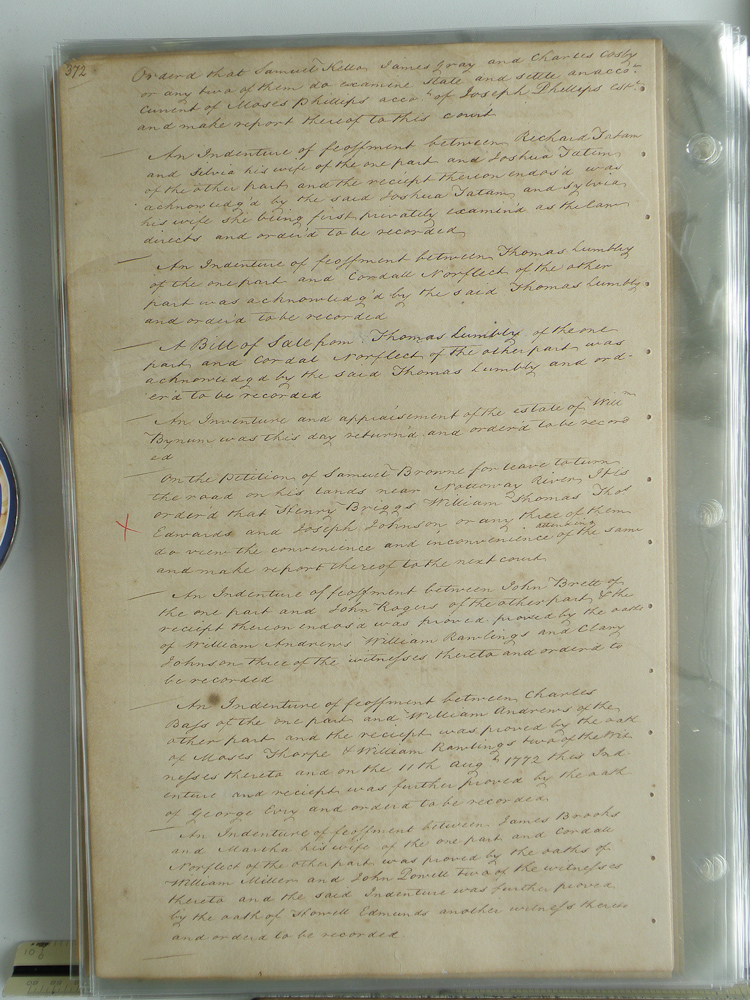 372
Orderd that Samuel Kello James Gray and Charles Cosby
or any two of them do examine state and settle an acco.t
current of Moses Phillips acco.t of Joseph Phillips
and make report thereof to this court
An Indenture of feoffment between Richard Tatum
and Silvia his wife of the one part and Joshua Tatum
of the other part and the reciept thereon endors'd was
acknowledg'd by the said Joshua Tatum and Sylvia
his wife she being first privately examin'd as the law
directs and order'd to be recorded
An Indenture of feoffment between Thomas Lumbly
of the one part and Cordall Norflect of the other
part was acknowledg'd by the said Thomas Lumbly
and order'd to be recorded
A Bill of Sale from Thomas Lumbly of the one
part and Cordal Norflect of the other part was
acknowledg'd by the said Thomas Lumbly and ord-
er'd to be recorded
An Inventure and appraisement of the estate of Will.m
Bynum was this day return'd and order'd to be record
ed
On the Petition of Samuel Browne for leave to turn
the road on his lands near Nottoway River It is
order'd that Henry Briggs William Thomas Tho.s
Edwards and Joseph Johnson or any three of them
do view the convenience and inconvenience attending of the same
and make report thereof to the next court
An Indenture of feoffment between John Brett of
the one part and John Rogers of the other part & the
reciept thereon endorsd was proved proved by the oaths
of William Andrews William Rawlings and Clary
Johnson three of the witnesses thereto and orderd to
be recorded
An Indenture of feoffment between Charles
Bass of the one part and William Andrews of the
other part and the reciept was proved by the oath
of Moses Thorpe & William Rawlings two of the Wit
nesses thereto and on the 11th Aug.t 1772 this Ind
enture and reciept was further proved by the oath
of George Evry and orderd to be recorded
An Indenture of feoffment between James Brooks
and Martha his wife of the one part and Cordall
Norflect of the other part was proved by the oaths of
William Miller and John Powell two of the witnesses
thereto and the said Indenture was further proved
by the oath of Howell Edmunds another witness thereto
and orderd to be recorded